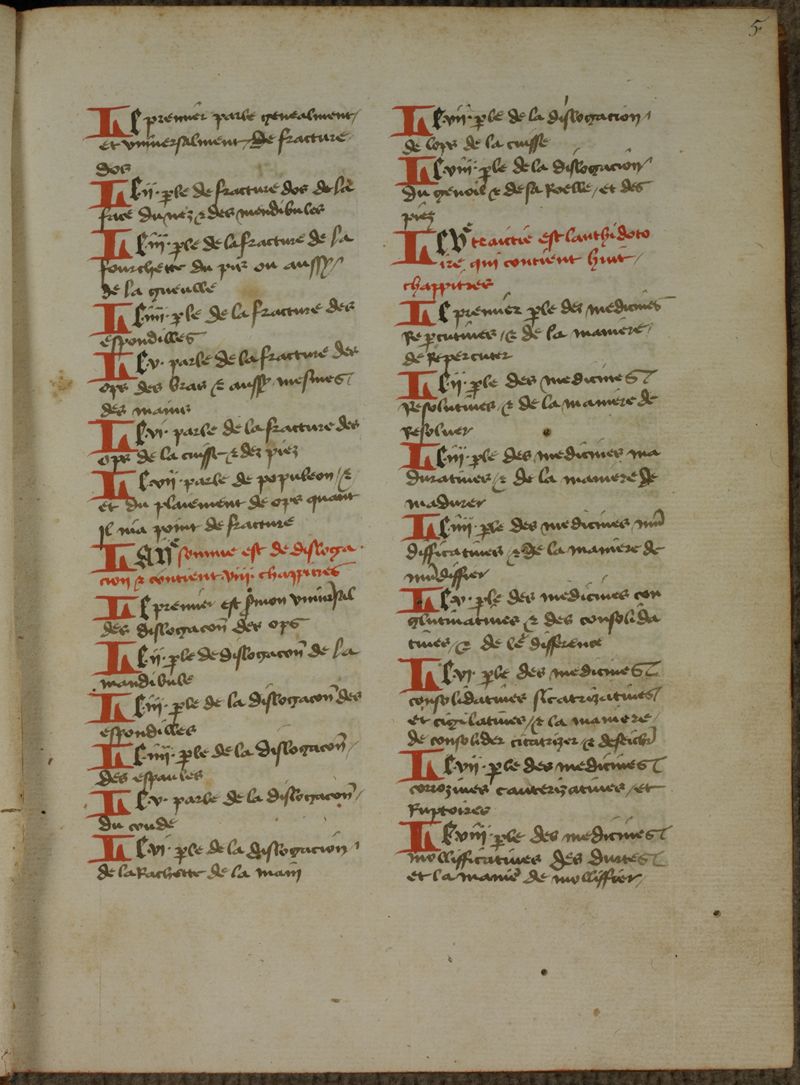 5
Le premier parle generalment
et universalment de fracture
dos
Le ii. ple de fracture dos de la
face du nez & des mendibules
Le iii. ple de la fracture de la
fourchette du pis ou aussy
de la gueulle
Le iiii. ple de la fracture des
espondilles
Le v. parle de la fracture des
ops des bras & aussy mesmes
des mains
Le vi. parle de la fracture des
ops de la cuisse & dez piez
Le vii. parle de populeon / &
et du plaiement de ops quant
Il nia point de fracture
La iie somme est de disloga
cion & contient viii. chappitres
Le premier est smon univsal
des dislogacon des ops
Le ii. ple de dislogacon de la
mandibule
Le iii. ple de la dislogacon des
espondilles
Le iiii. ple de la dislogacon
des espaules
Le v. parle de la dislogacon
du coude
Le vi. ple de la dislogacion
de la Rachette de la main
Le vii. ple de la dislogacion
de lops de la cuisse
Le viii. ple de la dislogacion
du genoil & de sa Roelle / et des
piez
Le ve traictie est lanthidoto
ire qui contient huit
chappitres
Le premier ple des medicines
Repcutives / & de la maniere
de Repercuter
Le ii. ple des medicines
Resolutives & de la maniere de
Resolver
Le iii. ple des medicines ma
duratives / & de la maniere de
madurer
Le iiii. ple des medicines mu
diffica­tives & de la maniere de
mudiffier
Le v. ple des medicines con
glutinatives & des consolida
tives / & de le difference
Le vi. ple des medicines
consolidatives sicatrizatives
et cigilatives / & la maniere
de consolider cicatrizer &
Le vii. ple des medicines
corozives cauterizatives / et
Ruptoires
Le viii. ple des medicines
mollifficatives des durtes
et la manie de molliffier